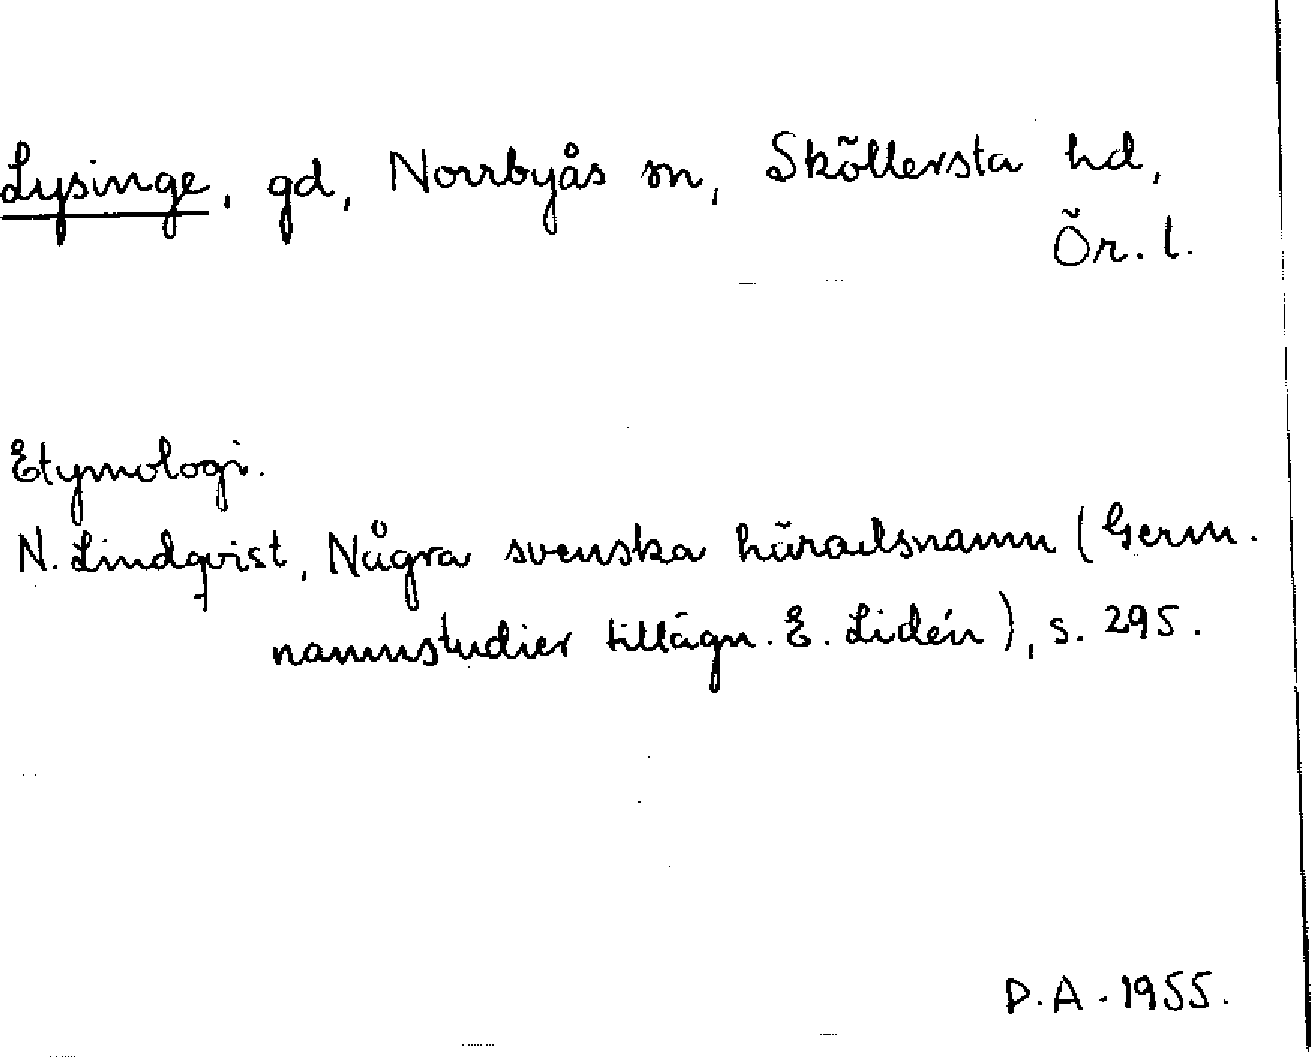 Lysinge, gd, Norrbyås sn, Sköllersta hd,
Ör. l.
Etymologi.
N. Lindqvist, Några svenska häradsnamn (Germ.
namnstudier tillägn. E. Lidén), s. 295.
D.A. 1955.